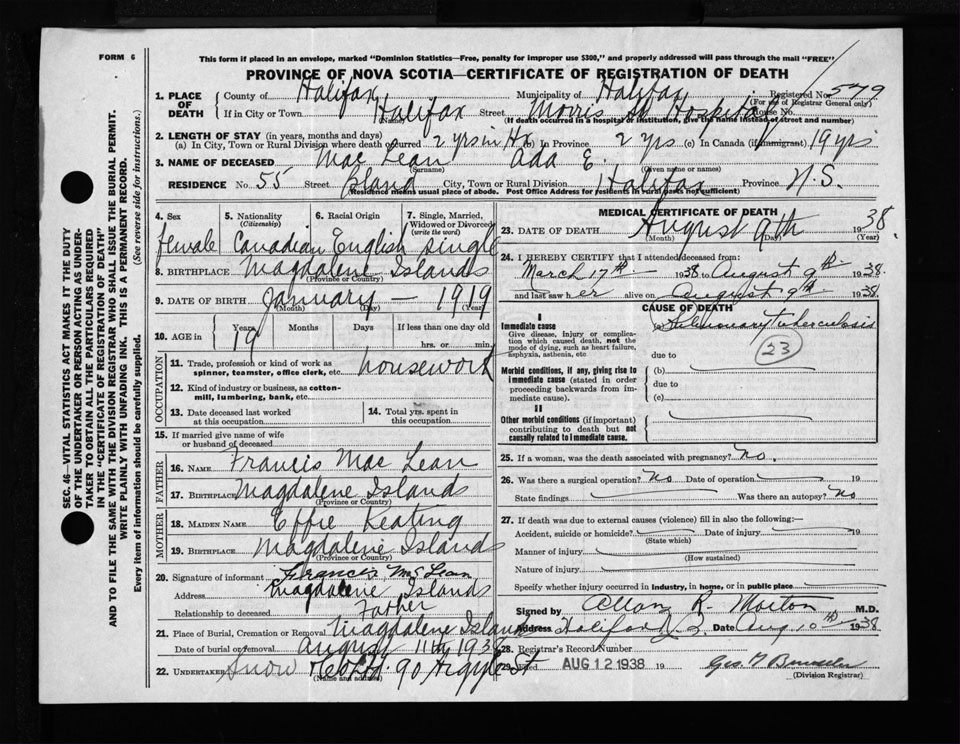 FORM 6
This form if placed in an envelope, marked "Dominion Statistics—Free, penalty for improper use $300," and properly addressed will pass through the mail "FREE"
PROVINCE OF NOVA SCOTIA—CERTIFICATE OF REGISTRATION OF DEATH
SEC. 46—VITAL STATISTICS ACT MAKES IT THE DUTY
OF THE UNDERTAKER OR PERSON ACTING AS UNDER-
TAKER TO OBTAIN ALL THE PARTICULARS REQUIRED
IN THE "CERTIFICATE OF REGISTRATION OF DEATH"
AND TO FILE THE SAME WITH THE DIVISION REGISTRAR WHO SHALL ISSUE THE BURIAL PERMIT.
WRITE PLAINLY WITH UNFADING INK. THIS IS A PERMANENT RECORD.
Every item of information should be carefully supplied. (See reverse side for instructions.)
1. PLACE OF DEATH County of Halifax Municipality of Halifax Registered No. 579
(For use of Registrar General only)
If in City or Town Halifax Street Morris St. Hospital House No.
(Name) (If death occurred in a hospital or institution, give the name instead of street and number)
2. LENGTH OF STAY (in years, months and days)
(a) In City, Town or Rural Division where death occurred 2 yrs in Hx (b) In Province 2 yrs (c) In Canada (if immigrant) 19 yrs
3. NAME OF DECEASED Mac Lean Ada E.
(Surname) (Given name or names)
RESIDENCE No. 55 Street Bland City, Town or Rural Division Halifax Province N.S.
(Residence means usual place of abode. Post Office Address for residents in rural parts not sufficient)
4. Sex 5. Nationality (Citizenship) 6. Racial Origin 7. Single, Married, Widowed or Divorced (write the word)
female Canadian English single
8. BIRTHPLACE Magdalene Islands
(Province or Country)
9. DATE OF BIRTH January — 1919
(Month) (Day) (Year)
10. AGE in Years Months Days If less than one day old
19 hrs. or min.
OCCUPATION
11. Trade, profession or kind of work as spinner, teamster, office clerk, etc. housework
12. Kind of industry or business, as cotton-mill, lumbering, bank, etc.
13. Date deceased last worked at this occupation 14. Total yrs. spent in this occupation
15. If married give name of wife or husband of deceased
FATHER
16. NAME Francis Mac Lean
17. BIRTHPLACE Magdalene Islands
(Province or Country)
MOTHER
18. MAIDEN NAME Effie Keating
19. BIRTHPLACE Magdalene Islands
(Province or Country)
20. Signature of informant Francis McLean
Address Magdalene Islands
Relationship to deceased Father
21. Place of Burial, Cremation or Removal Magdalene Islands
Date of burial or removal August 11th 1938
22. UNDERTAKER Snow & Co Ltd. 90 Argyle St
(Name and address)
MEDICAL CERTIFICATE OF DEATH
23. DATE OF DEATH August 9th 1938.
(Month) (Day) (Year)
24. I HEREBY CERTIFY that I attended deceased from:
March 17th 1938 to August 9th 1938.
and last saw her alive on August 9th 1938.
CAUSE OF DEATH
I
Immediate cause (a) Pulmonary tuberculosis
Give disease, injury or complica-
tion which caused death, not the
mode of dying, such as heart failure,
asphyxia, asthenia, etc
23
due to
Morbid conditions, if any, giving rise to (b)
immediate cause (stated in order
proceeding backwards from im-
mediate cause).
due to
(c)
II
Other morbid conditions (if important)
contributing to death but not
causally related to immediate cause.
25. If a woman, was the death associated with pregnancy? No.
26. Was there a surgical operation? No Date of operation 19
State findings Was there an autopsy? No
27. If death was due to external causes (violence) fill in also the following:—
Accident, suicide or homicide? Date of injury 19
(State which)
Manner of injury
(How sustained)
Nature of injury
Specify whether injury occurred in industry, in home, or in public place
Signed by Allan R. Morton M.D.
Address Halifax N.S. Date Aug 10th 1938
28. Registrar's Record Number
29. Filed AUG 12 1938 19
(Division Registrar)